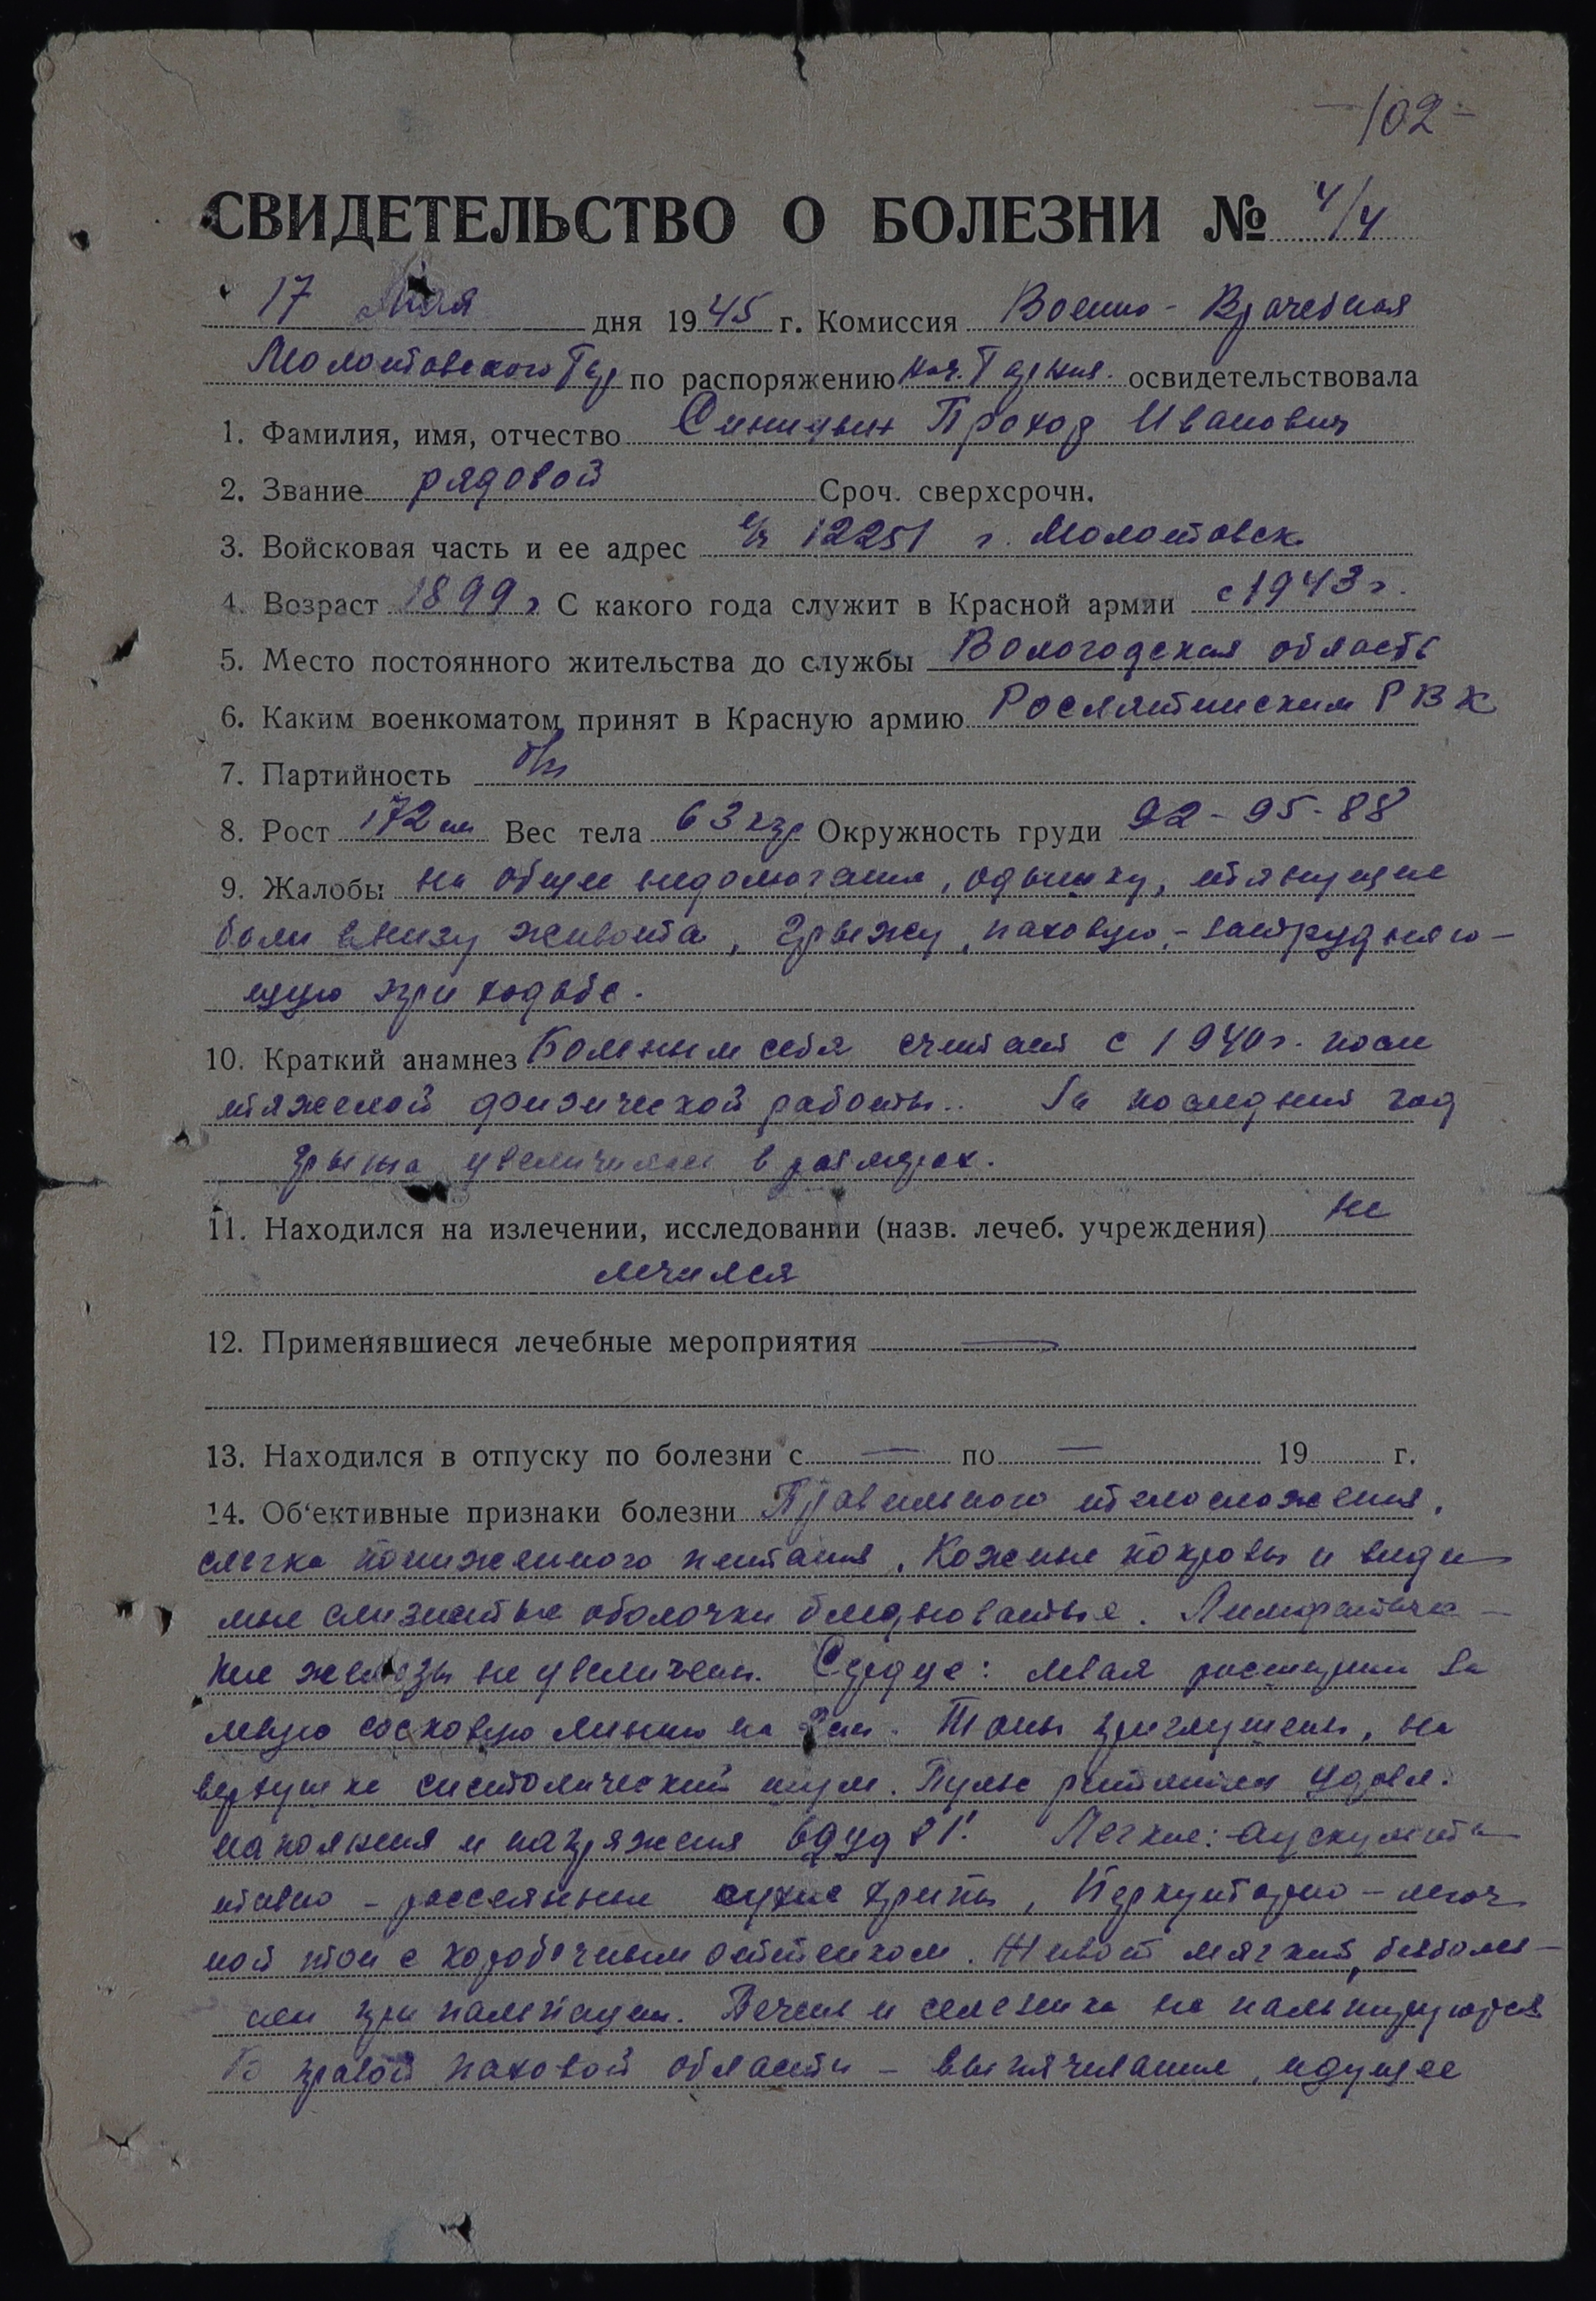 102
СВИДЕТЕЛЬСТВО О БОЛЕЗНИ № 4/4
17 Мая дня 1945 г. Комиссия Военно-Врачебная
Молотовского Гар по распоряжению нач. Гарниз. освидетельствовала
1. Фамилия, имя, отчество Синицын Проход Иванович
2. Звание рядовой Сроч. сверхсрочн.
3. Войсковая часть и ее адрес в/ч 12251 г. Молотовск
4. Возраст 1899 г С какого года служит в Красной армии с 1943 г.
5. Место постоянного жительства до службы Вологодская область
6. Каким военкоматом принят в Красную армию Рослятинским РВК
7. Партийность б/п
8. Рост 172 см Вес тела 63 кгр Окружность груди 92-95-88
9. Жалобы на общее недомогание, одышку, тянущие
боли внизу живота, грыжу паховую, - затрудняю-
щую при ходьбе.
10. Краткий анамнез Больным себя считает с 1940 г. после
тяжелой физической работы. За последний год
грыжа увеличилась в размерах.
11. Находился на излечении, исследовании (назв. лечеб. учреждения) не
лечился
12. Применявшиеся лечебные мероприятия —
13. Находился в отпуску по болезни с — по — 19 г.
14. Об'ективные признаки болезни Правильного телосложения,
слегка пониженного питания. Кожные покровы и види
мые слизистые оболочки бледноватые. Лимфатиче-
кие железы не увеличены. Сердце: левая расширен за
левую сосковую линию на 2 см. Тоны приглушены, на
верхушке систолический шум. Пульс ритмичен удовл.
наполнения и напряжения 81'. Легкие: - аускульта
тивно - рассеянные сухие хрипы, Перкуторно - легоч
ной тон с коробочным оттенком. Живот мягкий, безболез-
нен при пальпации. Печень и селезенка не пальпируются
В правой паховой области - выпячивание, идущее